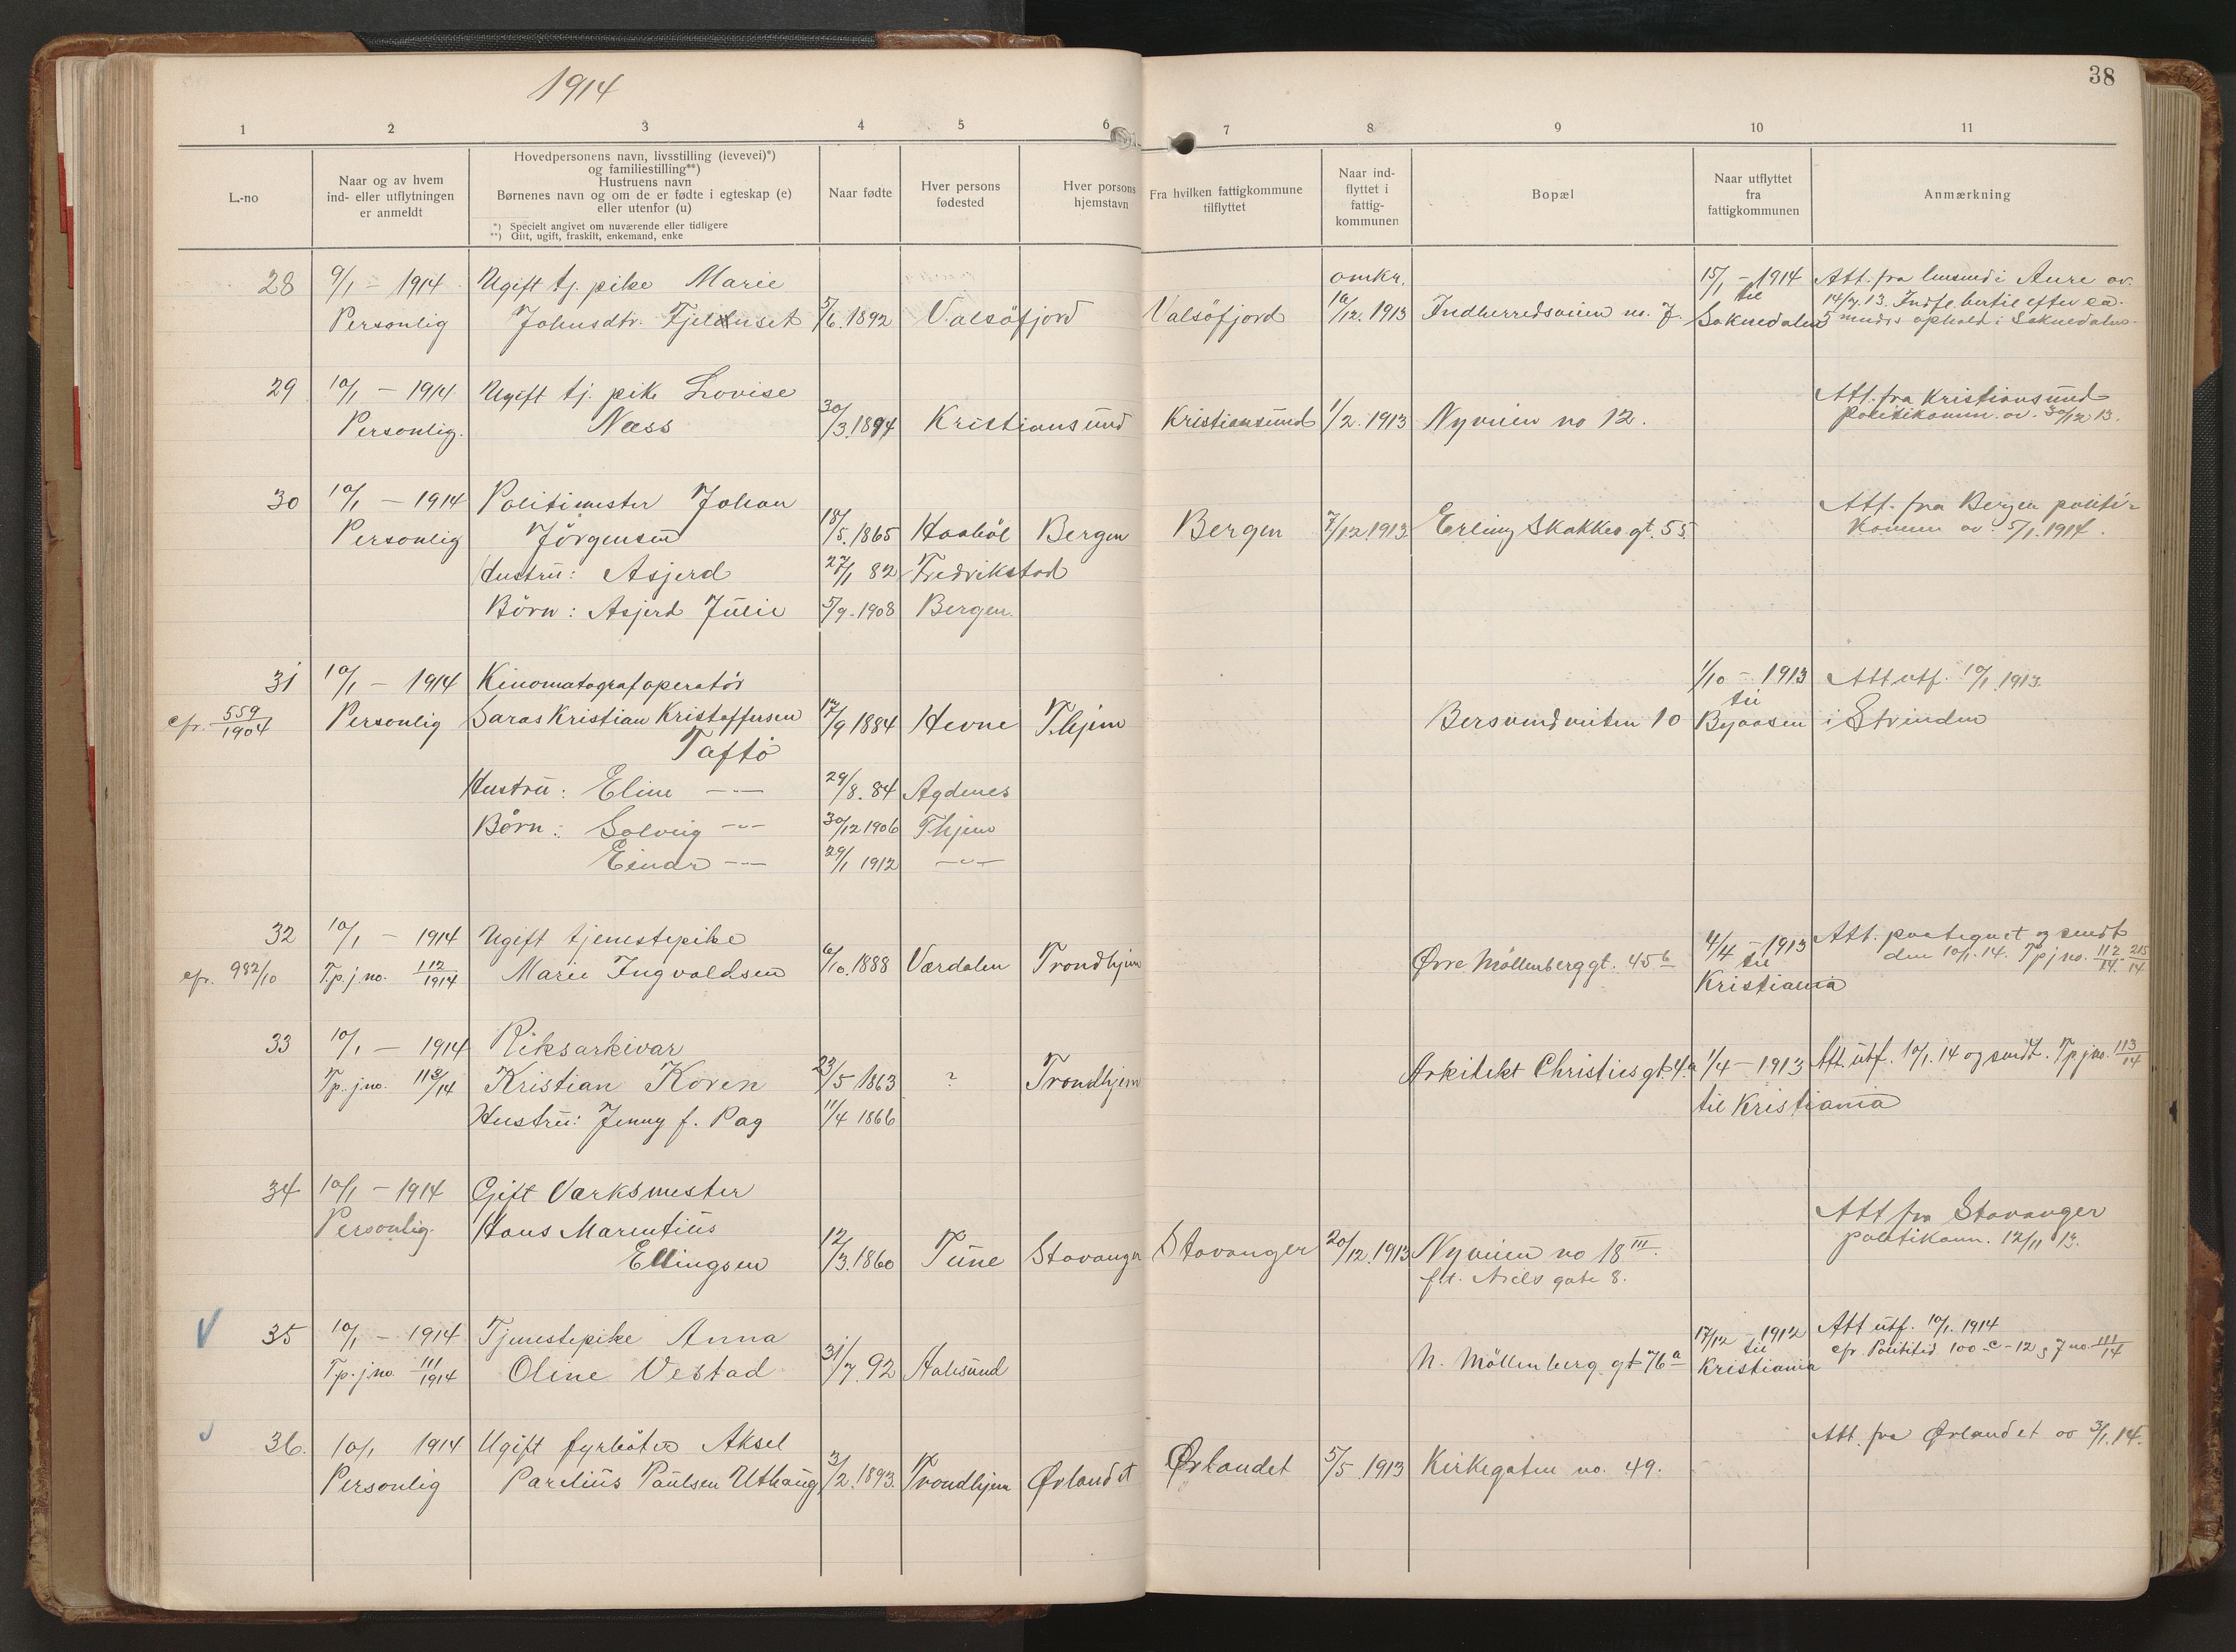 1914
38
1 2 3 4 5 6 7 8 9 10 11
L.-no
Naar og av hvem
ind- eller utflytningen
er anmeldt
Hovedpersonens navn, livsstilling (levevei)*)
og familiestilling**)
Hustruens navn
Børnenes navn og om de er fødte i egteskap (e)
eller utenfor (u)
*) Specielt angivet om nuværende eller tidligere
**) Gift, ugift, fraskilt, enkemand, enke
Naar fødte
Hver persons
fødested
Hver persons
hjemstavn
Fra hvilken fattigkommune
tilflyttet
Naar ind-
flyttet i
fattig-
kommunen
Bopæl
Naar utflyttet
fra
fattigkommunen
Anmærkning
28 9/1 - 1914 Ugift tj. pike Marie omkr. 15/1 - 1914 Att. fra lensmd i Aure av
Personlig Johnsdtr. Fjelhuset 5/6. 1892 Valsöfjord Valsöfjord 10/12. 1913 Indherredsveien no. 7. til Soknedalen
14/7. 13. Indfl. hertil efter ca.
5 mndrs ophold i Soknedalen
29 10/1 - 1914 Ugift tj. pike Lovise Att. fra Kristiansund
Personlig. Næss 30/3. 1894 Kristiansund Kristiansund 1/2. 1913 Nyveien no 12. politikamm. av. 30/12 13.
30 10/1 - 1914 Politimester Johan Att. fra Bergen politi-
Personlig Jörgensen 18/5. 1865 Haaböl Bergen Bergen 7/12 1913. Erling Skakkes gt. 55. kamm av. 5/1. 1914.
Hustru: Asjerd 27/1 82 Fredrikstad
Börn: Asjerd Julie 5/9 - 1908 Bergen.
31 10/1 - 1914 Kinomatografoperatör 1/10 - 1913 Att utf. 10/1 1913.
cfr. 559/1904 Personlig Saras Kristian Kristoffersen 17/9 1884 Hevne T.hjem Bersvendveiten 10 til Byaasen i Strinden
Taftö
Hustru: Eline -"- 29/8. 84 Agdenes
Börn: Solveig -"- 30/12 1906 T.hjem
Einar -"- 29/1 1912 -"-
32 10/1 - 1914 Ugift tjenestepike 4/4 - 1913 Att. paategnet og sendt
cfr. 982/10 T.p.j.no. 112/1914 Marie Ingvaldsen 6/10. 1888 Værdalen Trondhjem Øvre Möllenberggt. 45 b til den 10/1. 14. T.p.j.no. 112/14. 215/14
Kristiania
33 10/1 - 1914 Riksarkivar
T.p.j.no. 113/14 Kristian Koren 23/5 1863 ? Trondhjem Arkitekt Christies gt. 4.a 1/4 - 1913 Att. utf. 10/1. 14 og sendt. T.p.j.no. 113/14
Hustru: Jenny f. Pag 11/4 1866 til Kristiania
34 10/1 - 1914 Gift Værksmester
Personlig. Hans Marentius Att fra Stavanger
Ellingsen 12/3. 1860 Tune Stavanger Stavanger 20/12. 1913 Nyveien no 18 III. politikam. 12/11 13.
fl. Niels gate 8.
35 10/1 - 1914 Tjenestepike Anna 17/12 - 1912 Att utf. 10/1. 1914
T.p.j.no. 111/1914 Oline Vestad 31/7. 92 Aalesund N. Möllenberg gt 76 a til Kristiania cfr. Politited 100 - c - 12 g J no. 111/14
36. 10/1 1914 Ugift fyrböter Aksel Att. fra Ørlandet av 3/1. 14.
Personlig Parelius Paulsen Uthaug 3/2. 1893. Trondhjem Ørlandet Ørlandet 5/5 1913 Kirkegaten no. 49.